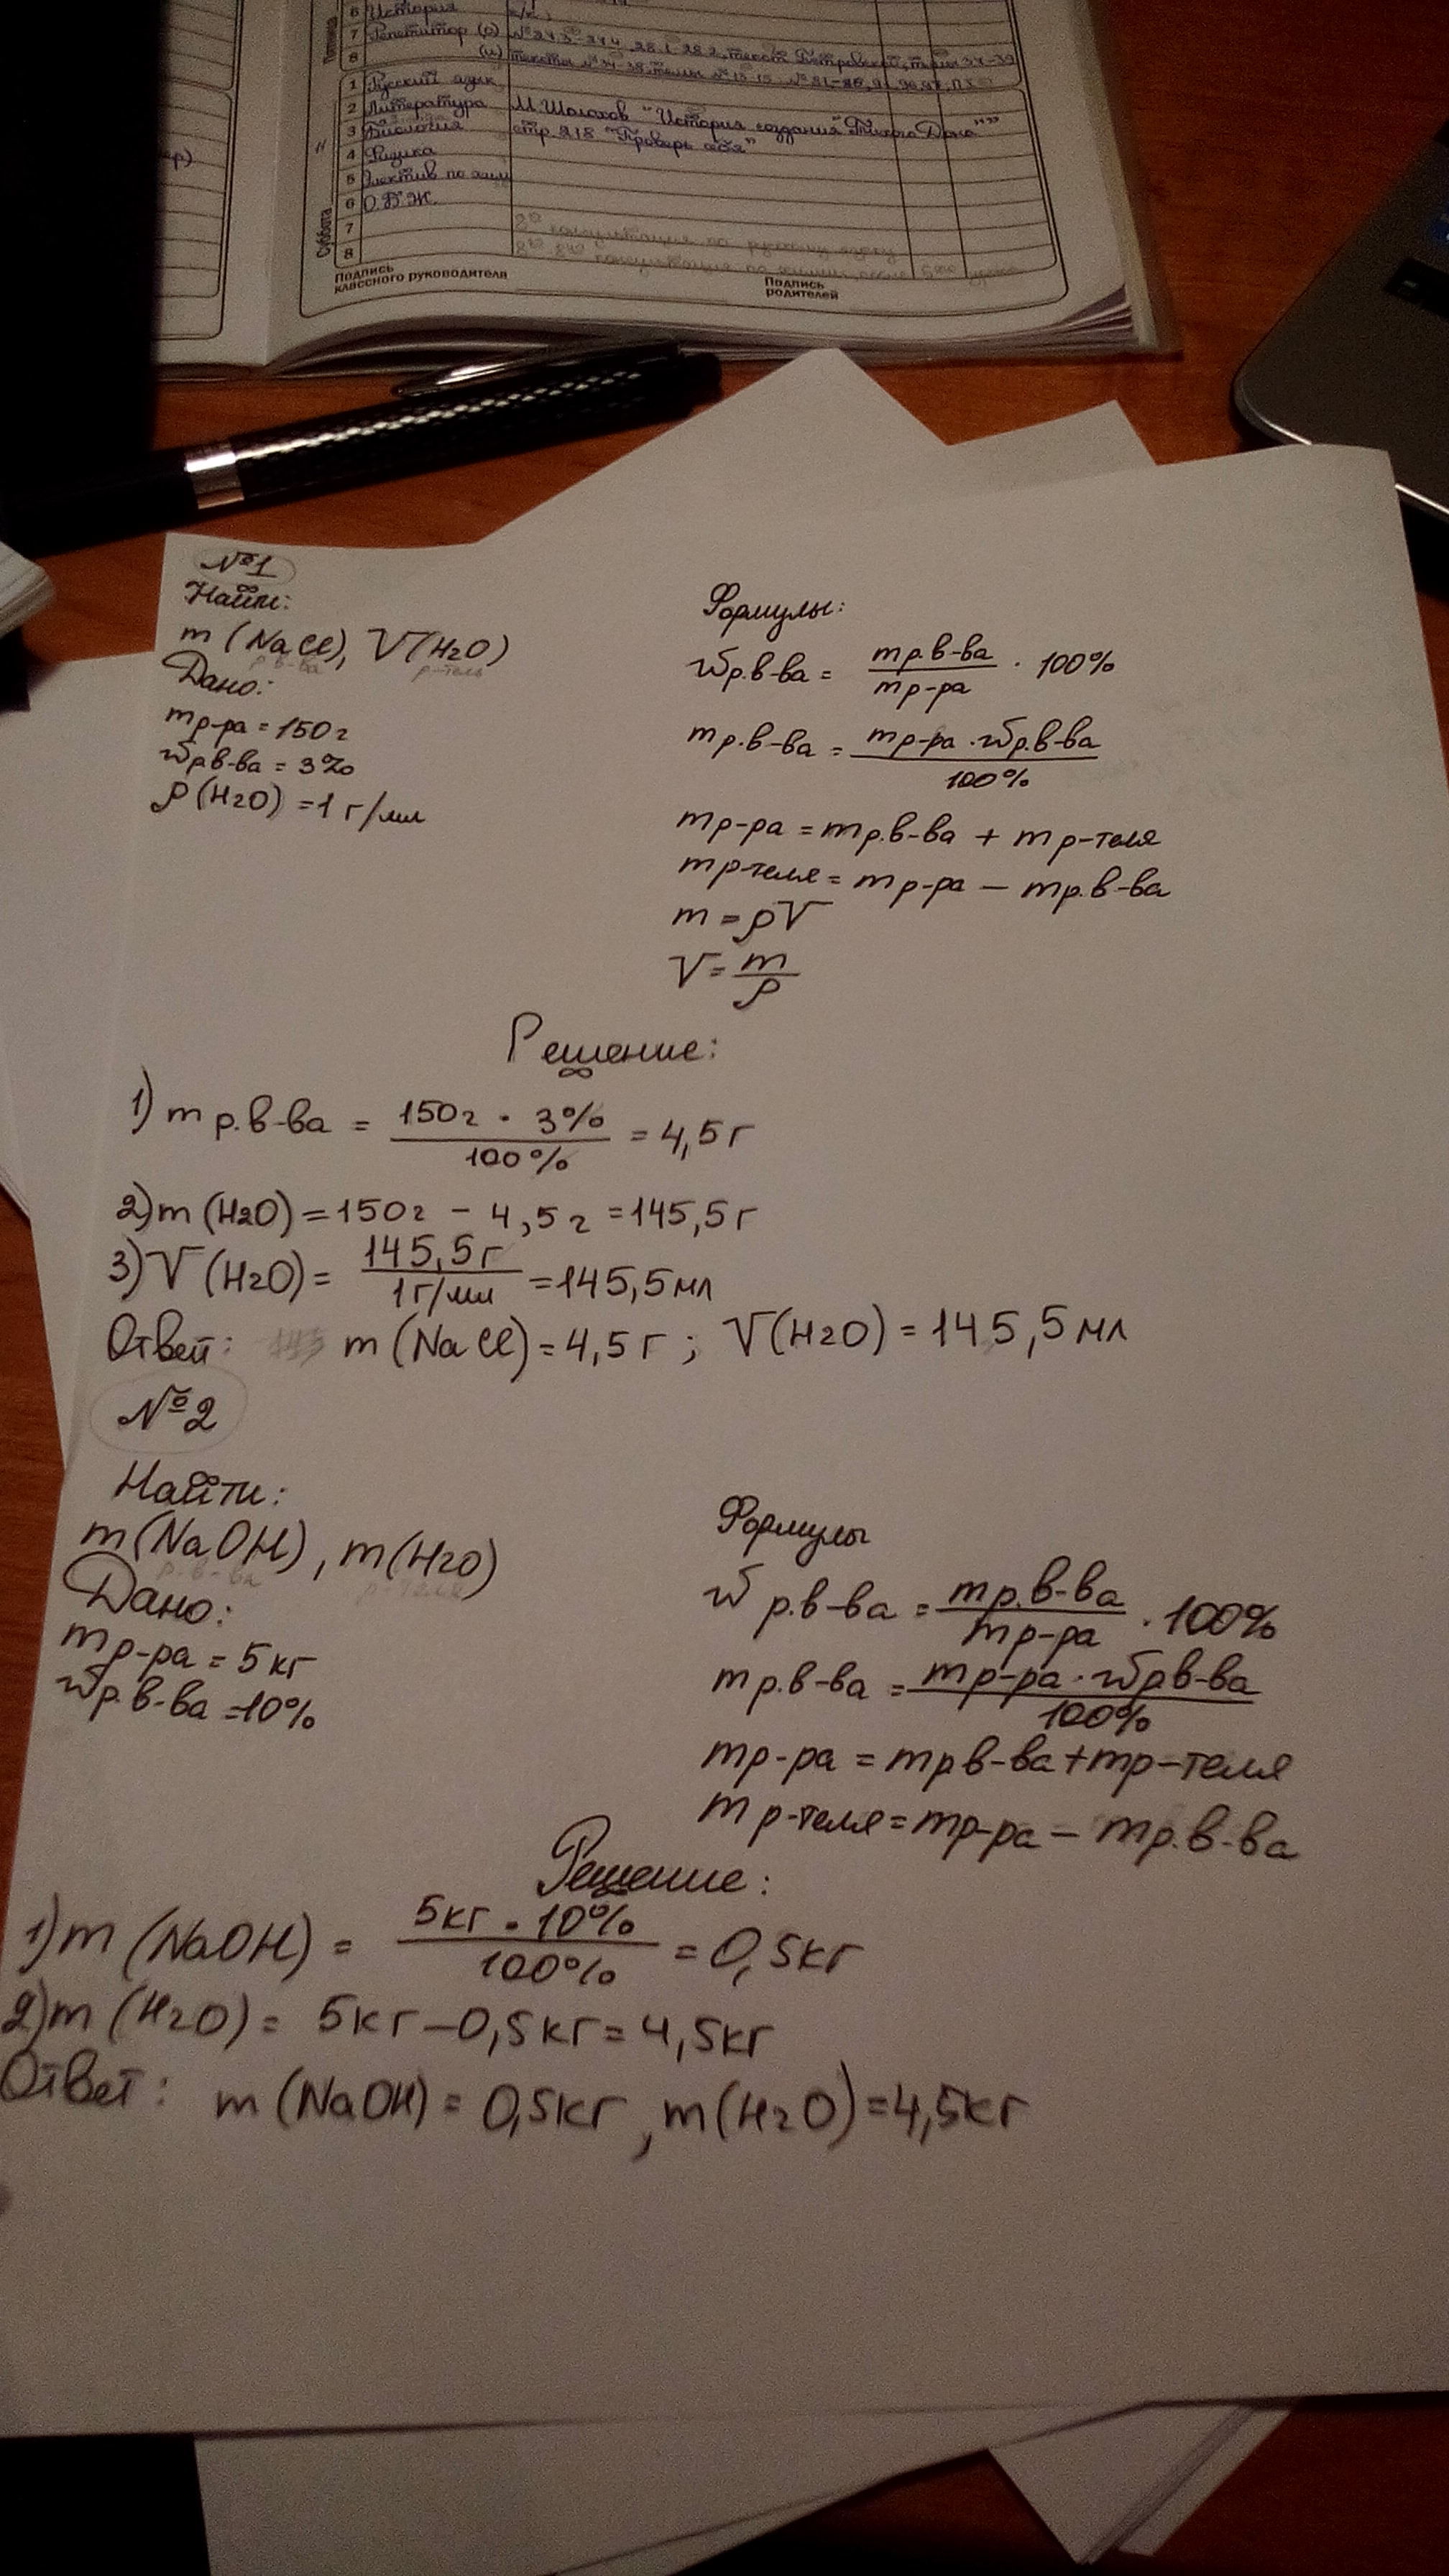 6 История
7 Репетитор (р)
8 (и)
1 Русский язык
2 Литература М. Шолохов "История создания "Тихого Дона""
3 Биология стр. 218 "Проверь себя"
4 Физика
5 Электив по хим
6 О.Б.Ж.
7
8
Суббота
Подпись классного руководителя
Подпись родителей
№1
Найти:
m (NaCl), V(H2O)
р.в-ва р-тель
Дано:
mр-ра = 150г
wр.в-ва = 3%
ρ(H2O) = 1 г/мл
Формулы:
wр.в-ва = mр.в-ва / mр-ра · 100%
mр.в-ва = mр-ра · wр.в-ва / 100%
mр-ра = mр.в-ва + mр-теля
mр-теля = mр-ра – mр.в-ва
m = ρV
V = m / ρ
Решение:
1) mр.в-ва = 150г · 3% / 100% = 4,5г
2) m (H2O) = 150г – 4,5г = 145,5г
3) V (H2O) = 145,5г / 1г/мл = 145,5мл
Ответ: m(NaCl) = 4,5г ; V(H2O) = 145,5мл
№2
Найти:
m(NaOH), m(H2O)
р-в-ва р-теля
Дано:
mр-ра = 5кг
wр.в-ва = 10%
Формулы
wр.в-ва = mр.в-ва / mр-ра · 100%
mр.в-ва = mр-ра · wр.в-ва / 100%
mр-ра = mр.в-ва + mр-теля
mр-теля = mр-ра – mр.в-ва
Решение:
1) m (NaOH) = 5кг · 10% / 100% = 0,5кг
2) m (H2O) = 5кг – 0,5кг = 4,5кг
Ответ: m (NaOH) = 0,5кг, m(H2O) = 4,5кг